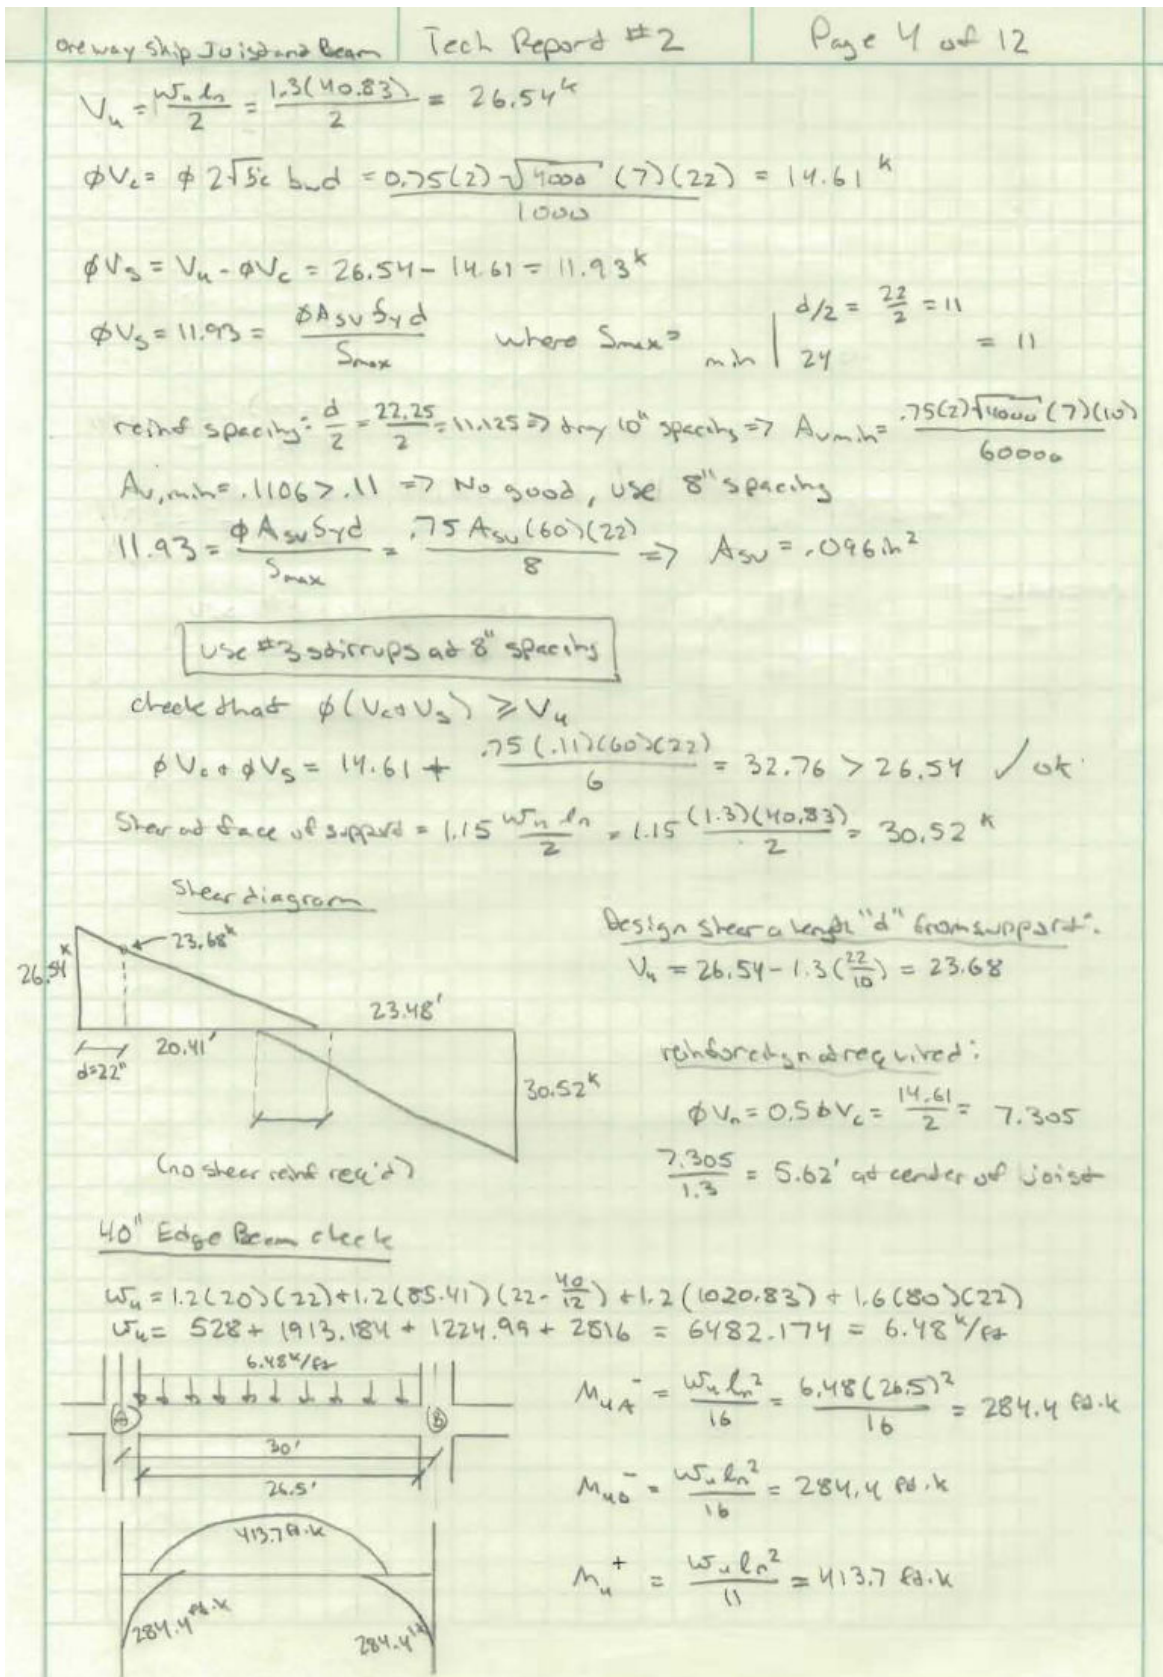 one way skip Joist and Beam Tech Report #2 Page 4 of 12
Vu = wu ln / 2 = 1.3(40.83) / 2 = 26.54 k
φVc = φ 2√f'c bwd = 0.75(2)√4000 (7)(22) / 1000 = 14.61 k
φVs = Vu - φVc = 26.54 - 14.61 = 11.93 k
φVs = 11.93 = φAsv fy d / Smax where Smax = min | d/2 = 22/2 = 11
24 = 11
reinf spacing: d/2 = 22.25/2 = 11.125 => try 10" spacing => Avmin = .75(2)√4000 (7)(10) / 60000
Av,min = .1106 > .11 => No good, use 8" spacing
11.93 = φ Asv fy d / Smax = .75 Asv (60)(22) / 8 => Asv = .096 in²
use #3 stirrups at 8" spacing
check that φ(Vc + Vs) ≥ Vu
φVc + φVs = 14.61 + .75(.11)(60)(22) / 6 = 32.76 > 26.54 ✓ ok
Shear at face of support = 1.15 wu ln / 2 = 1.15 (1.3)(40.83) / 2 = 30.52 k
Shear diagram
26.54 k
23.68 k
23.48'
20.41'
d=22"
30.52 k
(no shear reinf req'd)
Design shear a length "d" from support:
Vu = 26.54 - 1.3(22/10) = 23.68
reinforcing not required:
φVn = 0.5 φVc = 14.61/2 = 7.305
7.305/1.3 = 5.62' at center of joist
40" Edge Beam check
wu = 1.2(20)(22) + 1.2(85.41)(22 - 40/12) + 1.2(1020.83) + 1.6(80)(22)
wu = 528 + 1913.184 + 1224.99 + 2816 = 6482.174 = 6.48 k/ft
6.48 k/ft
A B
30'
26.5'
413.7 ft.k
284.4 ft.k
284.4 ft
MuA⁻ = wu ln² / 16 = 6.48(26.5)² / 16 = 284.4 ft.k
MuB⁻ = wu ln² / 16 = 284.4 ft.k
Mu⁺ = wu ln² / 11 = 413.7 ft.k